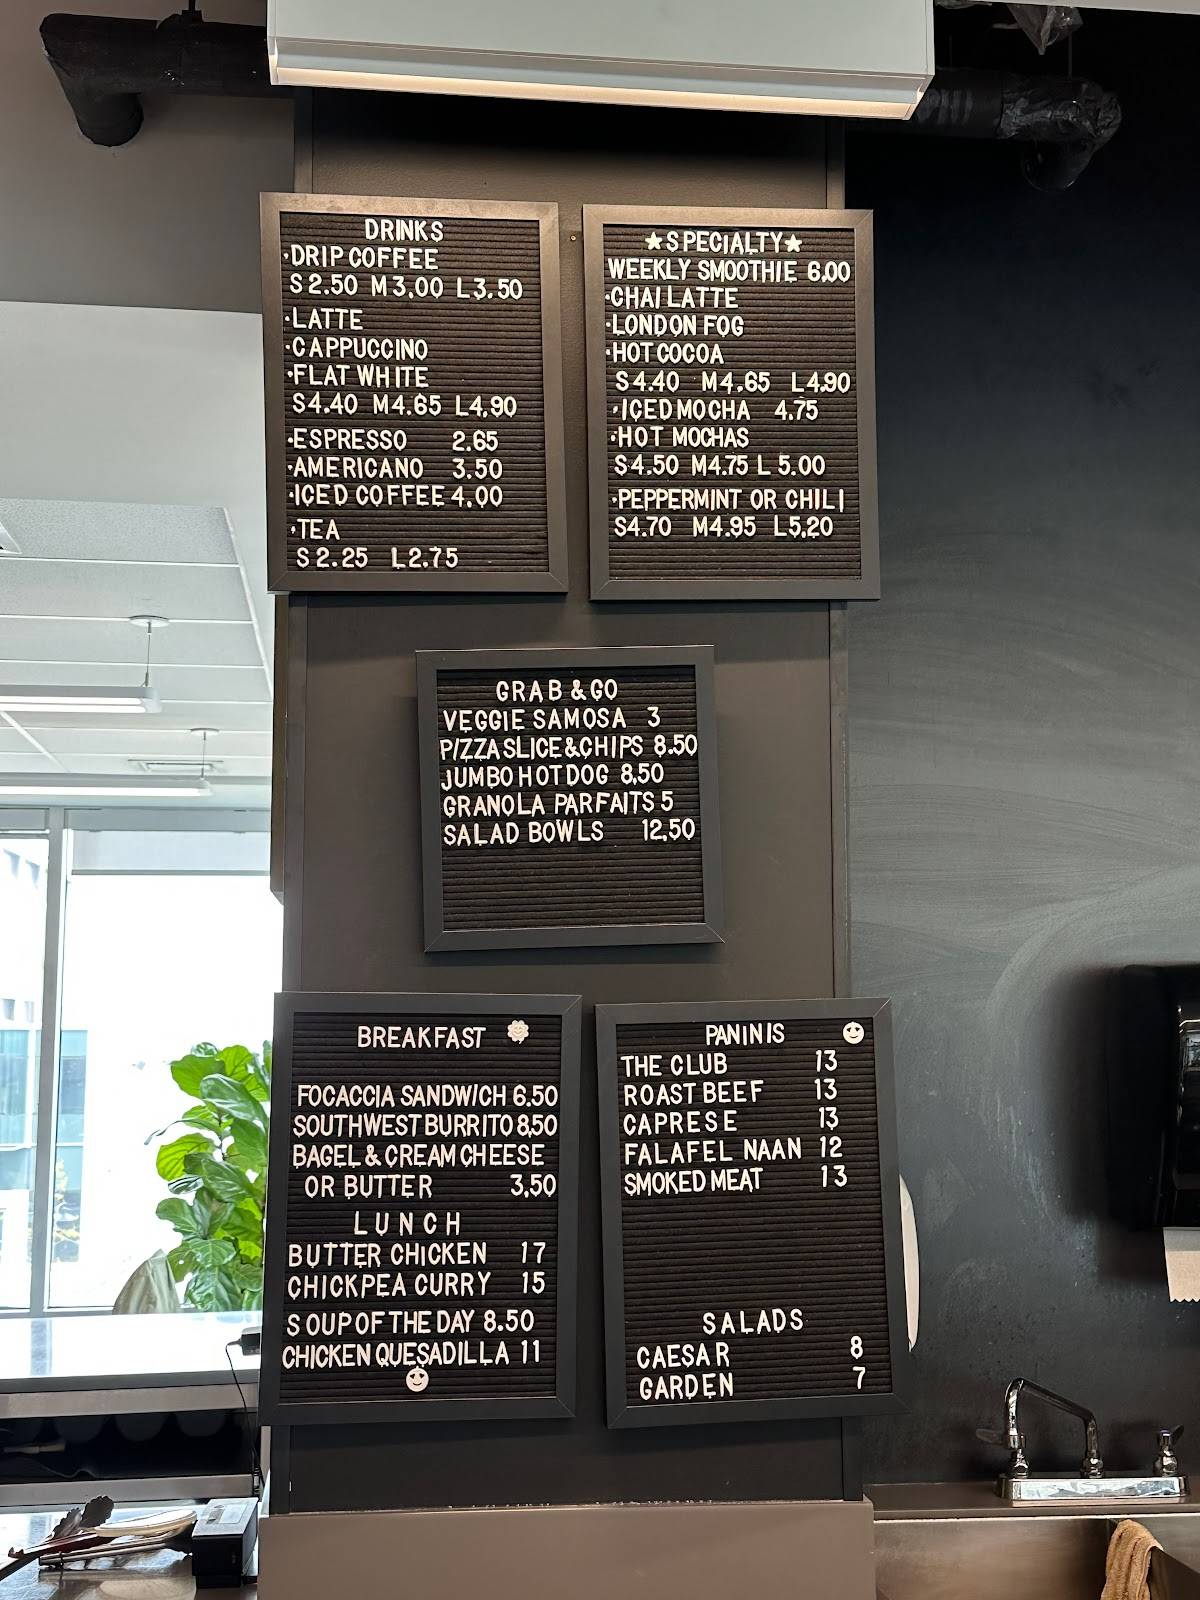 DRINKS
·DRIP COFFEE
S 2.50 M3.00 L3.50
·LATTE
·CAPPUCCINO
·FLAT WHITE
S4.40 M4.65 L4.90
·ESPRESSO 2.65
·AMERICANO 3.50
·ICED COFFEE 4.00
·TEA
S 2.25 L2.75
★SPECIALTY★
WEEKLY SMOOTHIE 6.00
·CHAI LATTE
·LONDON FOG
·HOT COCOA
S4.40 M4.65 L4.90
·ICED MOCHA 4.75
·HOT MOCHAS
S4.50 M4.75 L 5.00
·PEPPERMINT OR CHILI
S4.70 M4.95 L5.20
GRAB & GO
VEGGIE SAMOSA 3
PIZZA SLICE & CHIPS 8.50
JUMBO HOT DOG 8.50
GRANOLA PARFAITS 5
SALAD BOWLS 12.50
BREAKFAST
FOCACCIA SANDWICH 6.50
SOUTHWEST BURRITO 8.50
BAGEL & CREAM CHEESE
OR BUTTER 3.50
LUNCH
BUTTER CHICKEN 17
CHICKPEA CURRY 15
SOUP OF THE DAY 8.50
CHICKEN QUESADILLA 11
PANINIS
THE CLUB 13
ROAST BEEF 13
CAPRESE 13
FALAFEL NAAN 12
SMOKED MEAT 13
SALADS
CAESAR 8
GARDEN 7